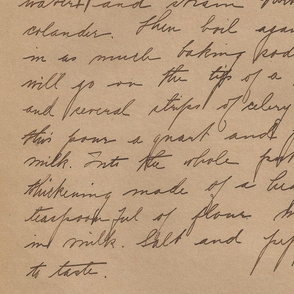 water) and strain through
colander. Then boil again
in as much baking soda
will go on the tip of a
and several strips of celery
this pour a quart and
milk. Into the whole put
thickening made of a hea
teaspoonful of flour m
in milk. Salt and pep
to taste.